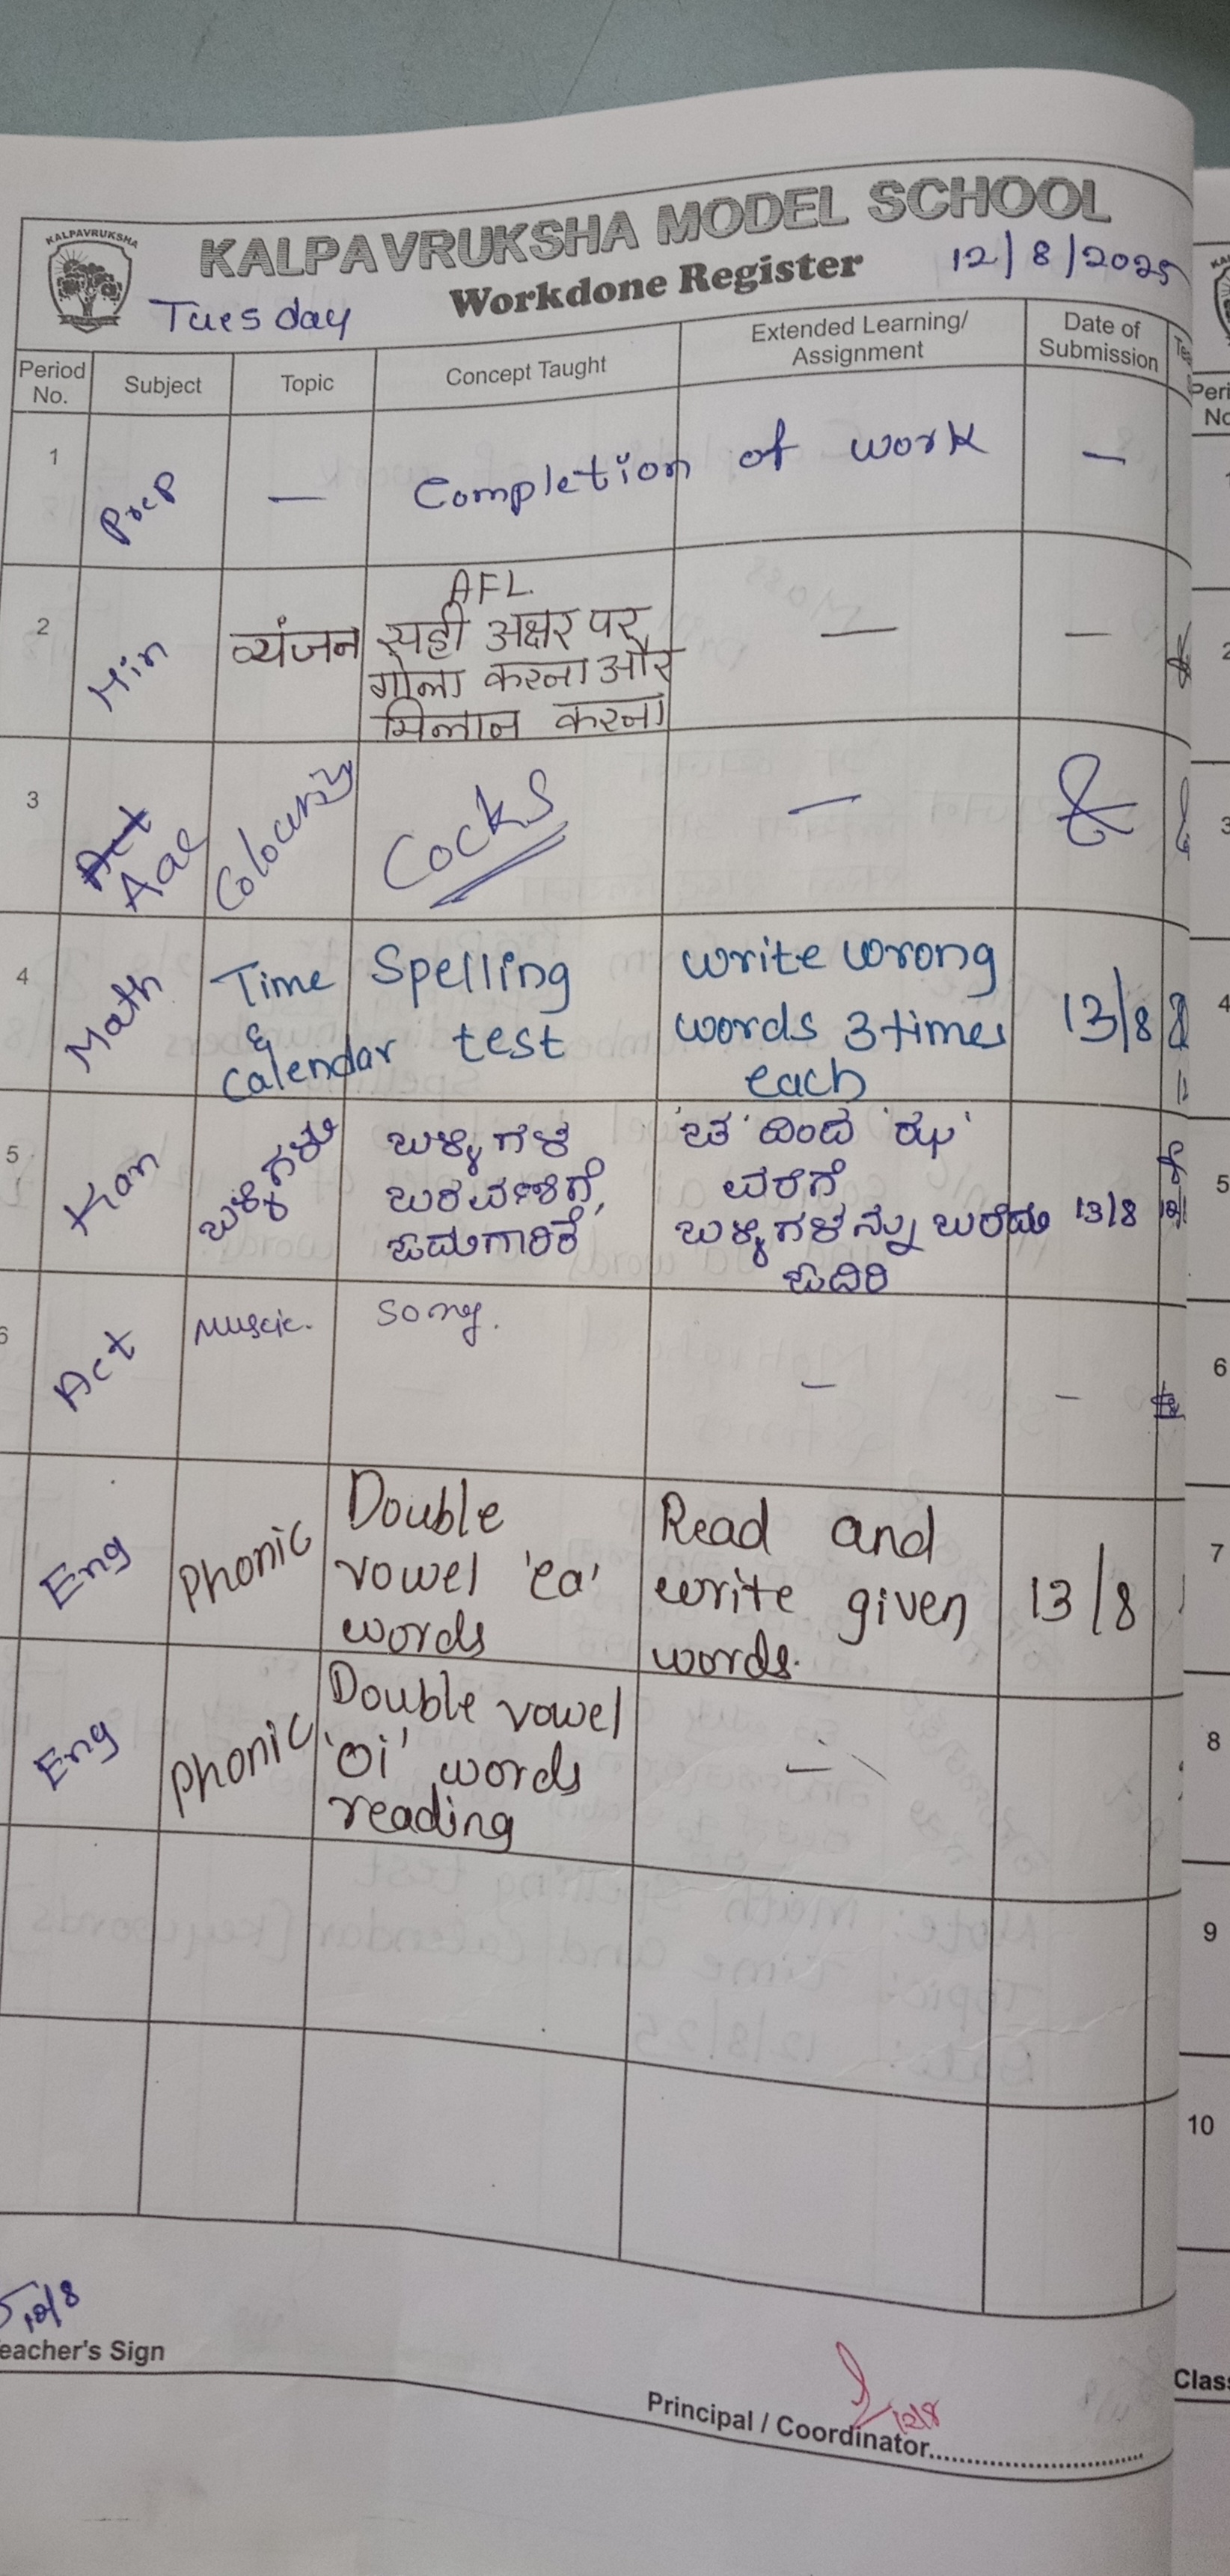 KALPAVRUKSHA
KALPAVRUKSHA MODEL SCHOOL
Workdone Register
12/8/2025
Tuesday
Period No.
Subject
Topic
Concept Taught
Extended Learning/
Assignment
Date of
Submission
1
Prep
—
Completion of work
—
2
Hin
व्यंजन
AFL.
सही अक्षर पर
गोला करना और
मिलान करना
—
—
3
Aae
Colouring
Cocks
—
4
Math
Time
&
Calendar
Spelling
test
write wrong
words 3 times
each
13/8
5
Kan
ಬಳ್ಳಿಗಳು
ಬಳ್ಳಿಗಳ
ಬರವಣಿಗೆ,
ಓದುಗಾರಿಕೆ
'ಚ' ದಿಂದ 'ಝ'
ವರೆಗೆ
ಬಳ್ಳಿಗಳನ್ನು ಬರೆದು
ಓದಿರಿ
13/8
6
Act
Muscic.
Song.
—
—
Eng
Phonic
Double
vowel 'ea'
words
Read and
write given
words.
13/8
Eng
Phonic
Double vowel
'oi' words
reading
—
12/8
eacher's Sign
12/8
Principal / Coordinator
Peri
No
2
3
4
5
6
7
8
9
10
Class